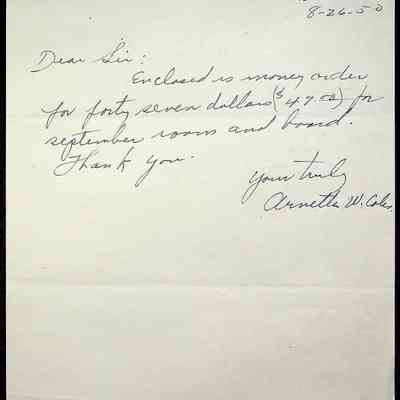 8-26-50
Dear Sir:
Enclosed is money order
for forty seven dollars ($47.00) for
september room and board.
Thank you.
Your truly
Arnetta W. Coles